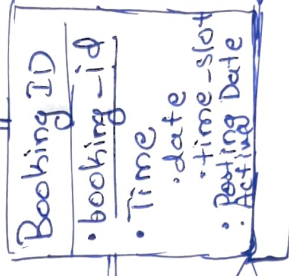 Booking ID
• booking-id
• Time
• date
• time-slot
• Posting Date
Acting